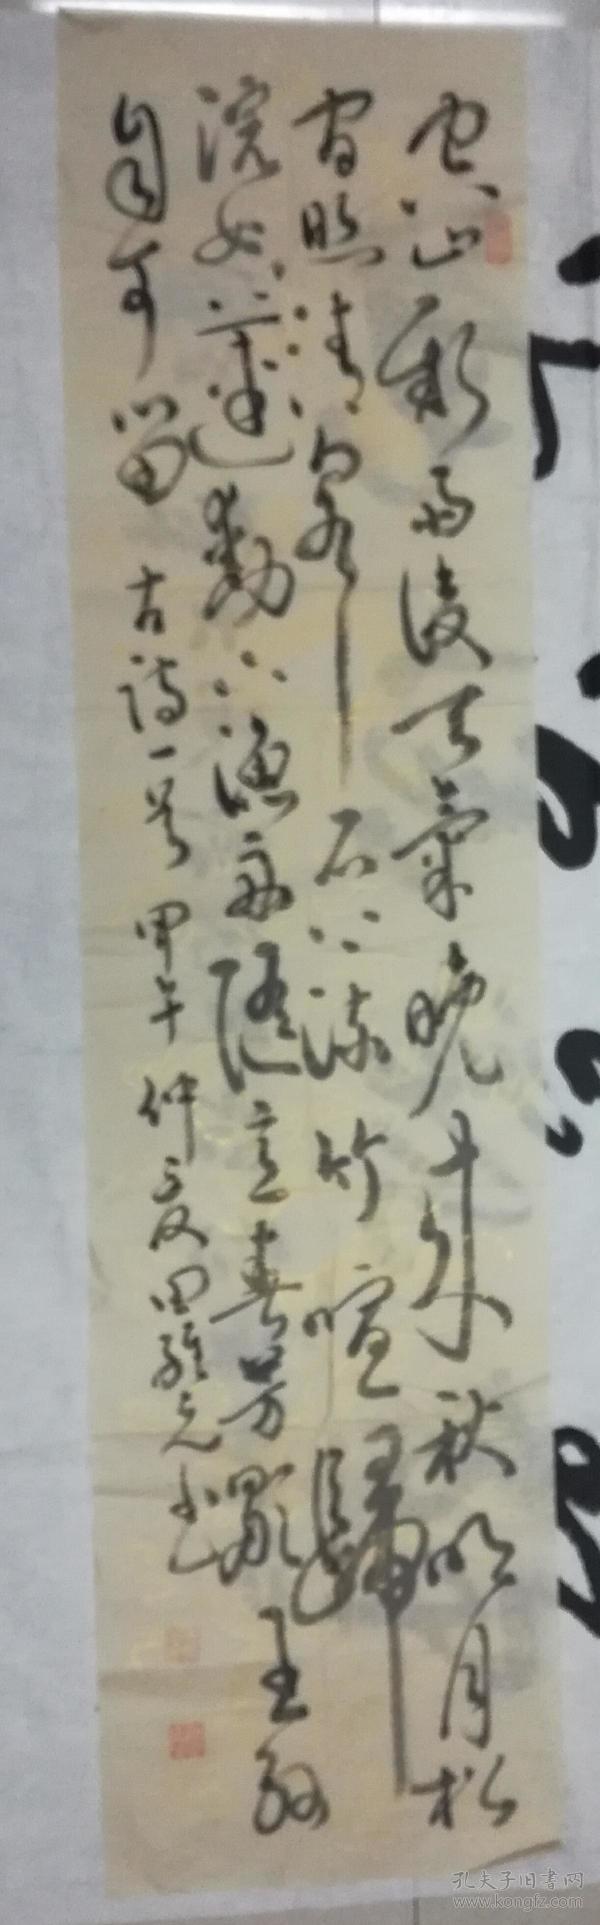 空山新雨後天氣晚来秋明月松
间照清泉石上流竹喧歸
浣女蓮動下漁舟随意春芳歇王孫
自可留 古詩一首 甲午仲夏田雅元书
孔夫子旧書网
www.kongfz.com